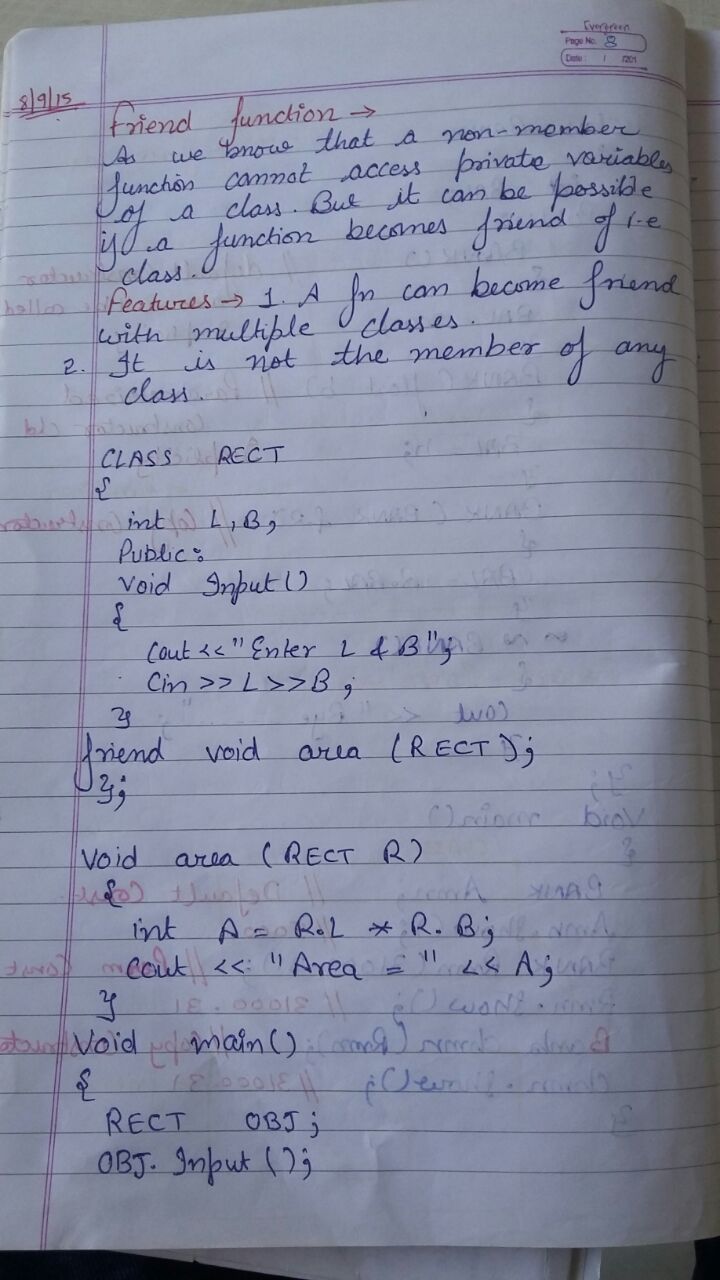 Evergreen
Page No. 8
Date: / /201
8/9/15
friend function →
As we know that a non-member
function cannot access private variables
of a class. But it can be possible
if a function becomes friend of i.e
class.
Features → 1. A fn can become friend
with multiple classes.
2. It is not the member of any
class.
CLASS RECT
{
int L, B;
Public:
void Input()
{
Cout << "Enter L & B";
Cin >> L >> B;
}
friend void area (RECT);
};
Void area (RECT R)
{
int A = R.L * R.B;
Cout << "Area = " << A;
}
Void main()
{
RECT OBJ;
OBJ. Input ();